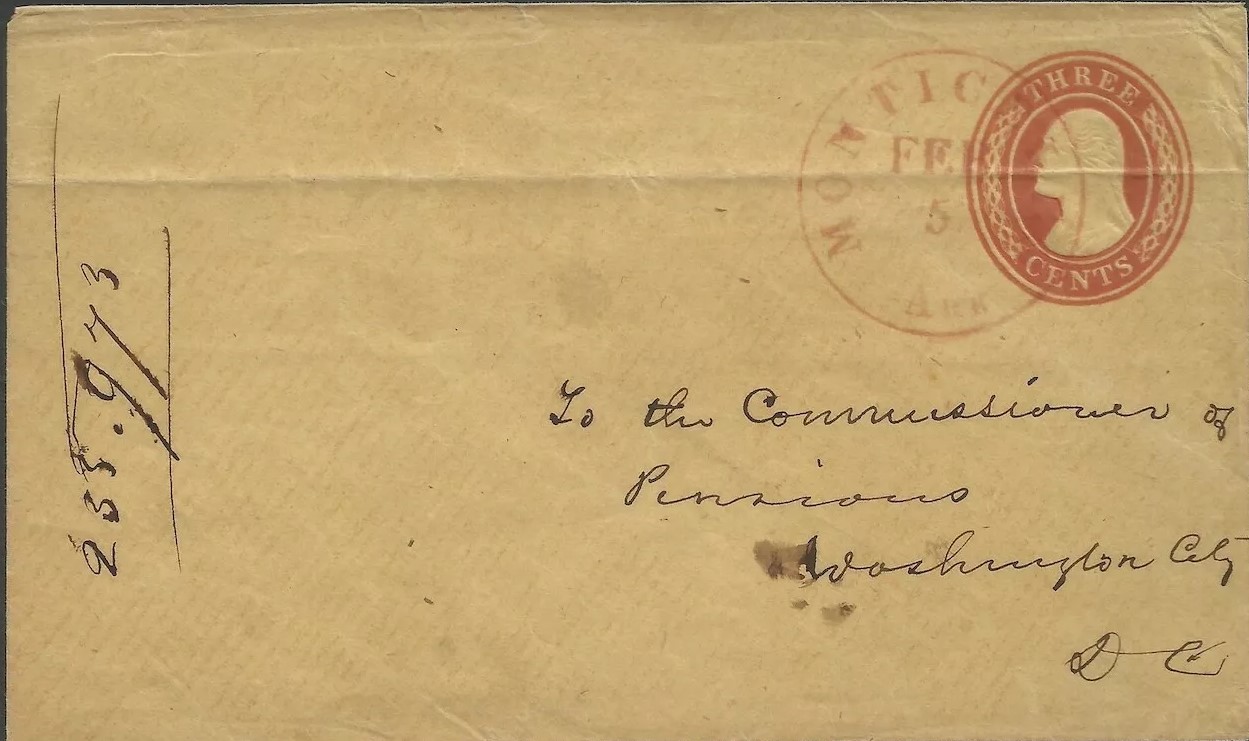 MONTIC
FEB
5
ARK
THREE
CENTS
To the Commissioner of
Pensions
Washington City
D C
255.973